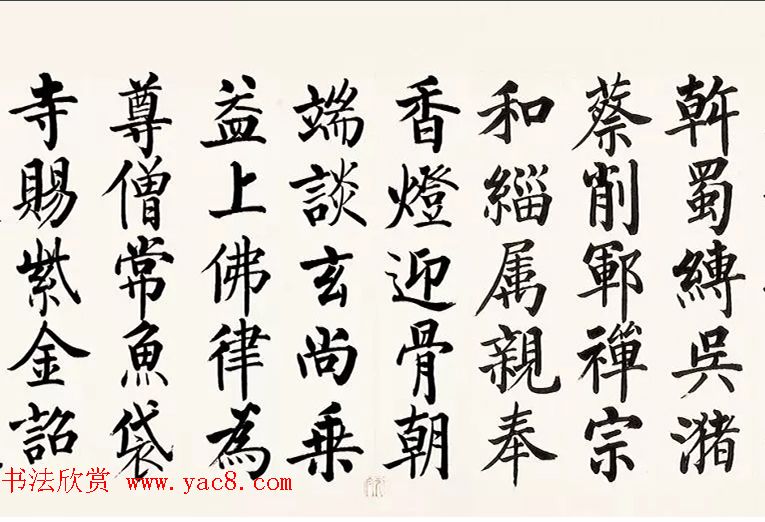 斡蜀縛吳潴
蔡削鄆禪宗
和緇属親奉
香燈迎骨朝
端談玄尚乗
益上佛律為
尊僧常魚袋
寺賜紫金詔
书法欣赏 www.yac8.com